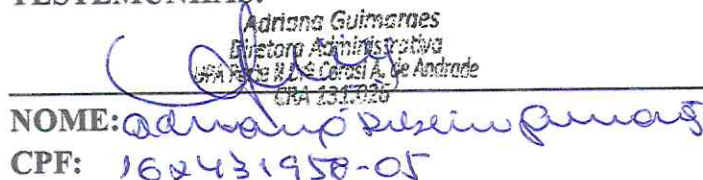 TESTEMUNHAS:
Adriana Guimaraes
Diretora Administrativa
UPA A. de Andrade
CRA 131.026
NOME: Adriana Ribeiro Guimarães
CPF: 162431958-05